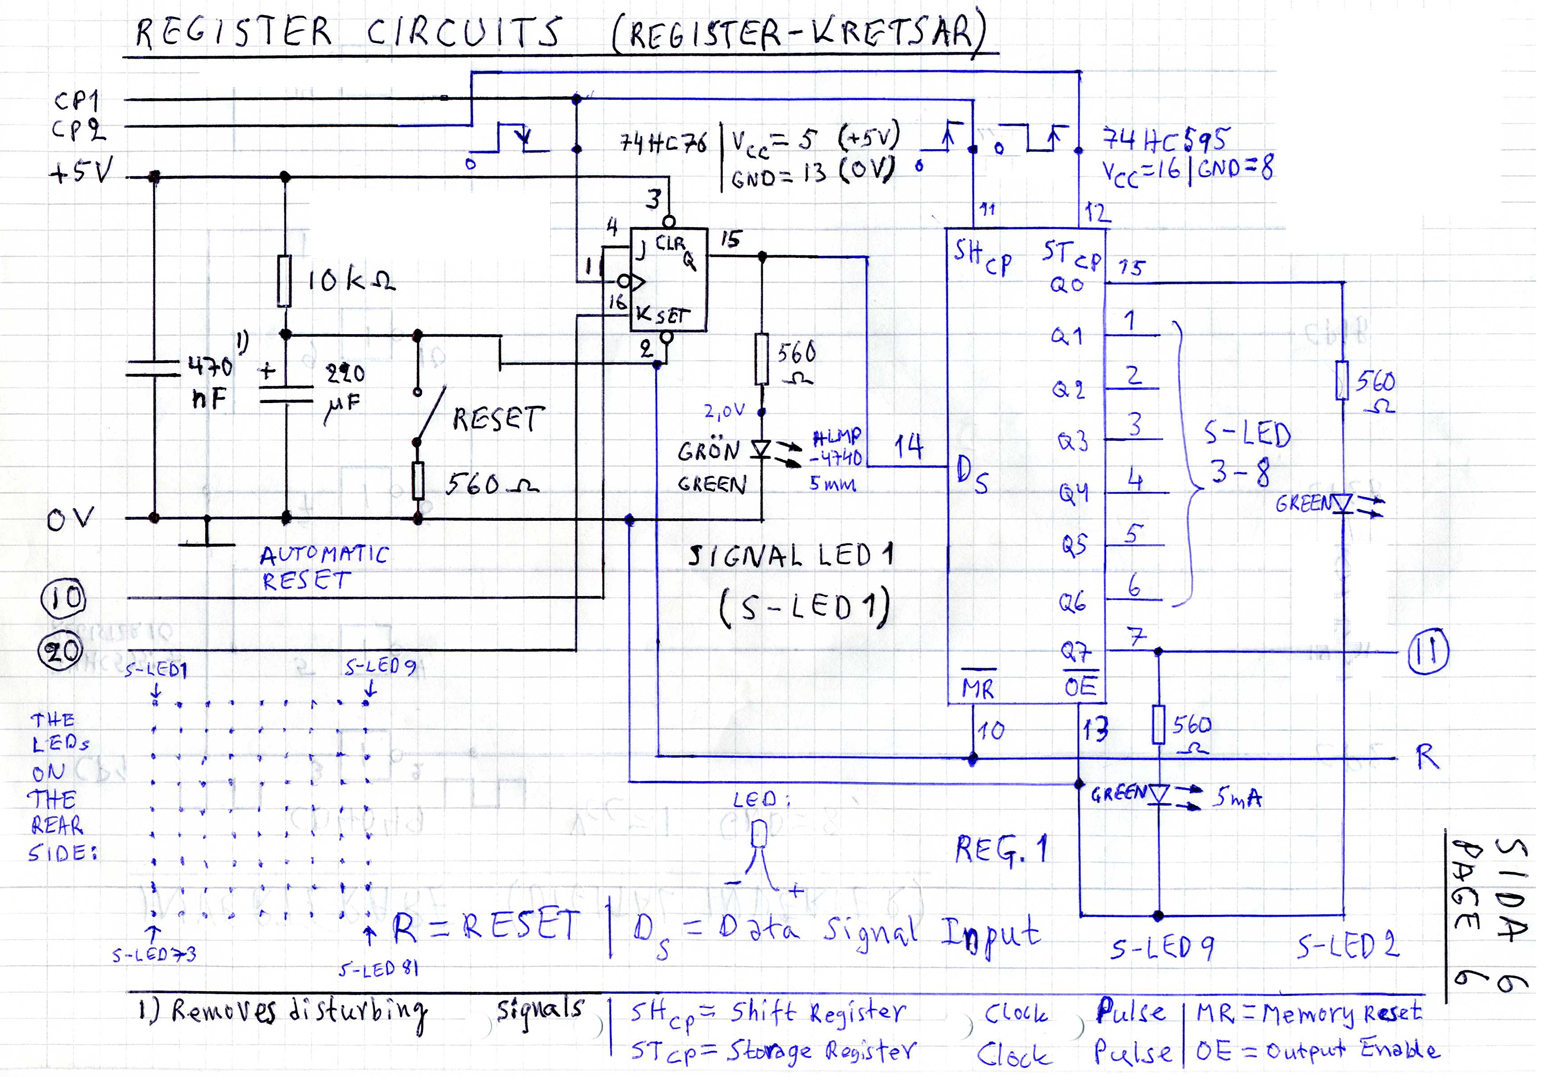 REGISTER CIRCUITS (REGISTER-KRETSAR)
CP1
CP2
+5V
0
74HC76 | VCC = 5 (+5V)
GND = 13 (0V)
0
0
74HC595
VCC=16 | GND=8
3
4
J
CLR
Q
15
1
16
K
SET
2
11
12
SHCP
STCP
15
Q0
10kΩ
1)
470 nF
+
220 µF
RESET
560Ω
560 Ω
2,0V
GRÖN
GREEN
HLMP
-4740
5mm
14
DS
Q1 1
Q2 2
Q3 3
Q4 4
Q5 5
Q6 6
Q7 7
S-LED
3-8
560 Ω
GREEN
0V
AUTOMATIC
RESET
SIGNAL LED1
(S-LED1)
10
20
11
MR
OE
10
13
560 Ω
R
GREEN
5mA
S-LED1
S-LED9
THE
LEDs
ON
THE
REAR
SIDE:
S-LED73
S-LED81
LED:
- +
REG. 1
R = RESET | DS = Data Signal Input
S-LED9
S-LED2
SIDA 6
PAGE 6
1) Removes disturbing signals | SHCP = Shift Register Clock Pulse | MR = Memory Reset
STCP = Storage Register Clock Pulse | OE = Output Enable